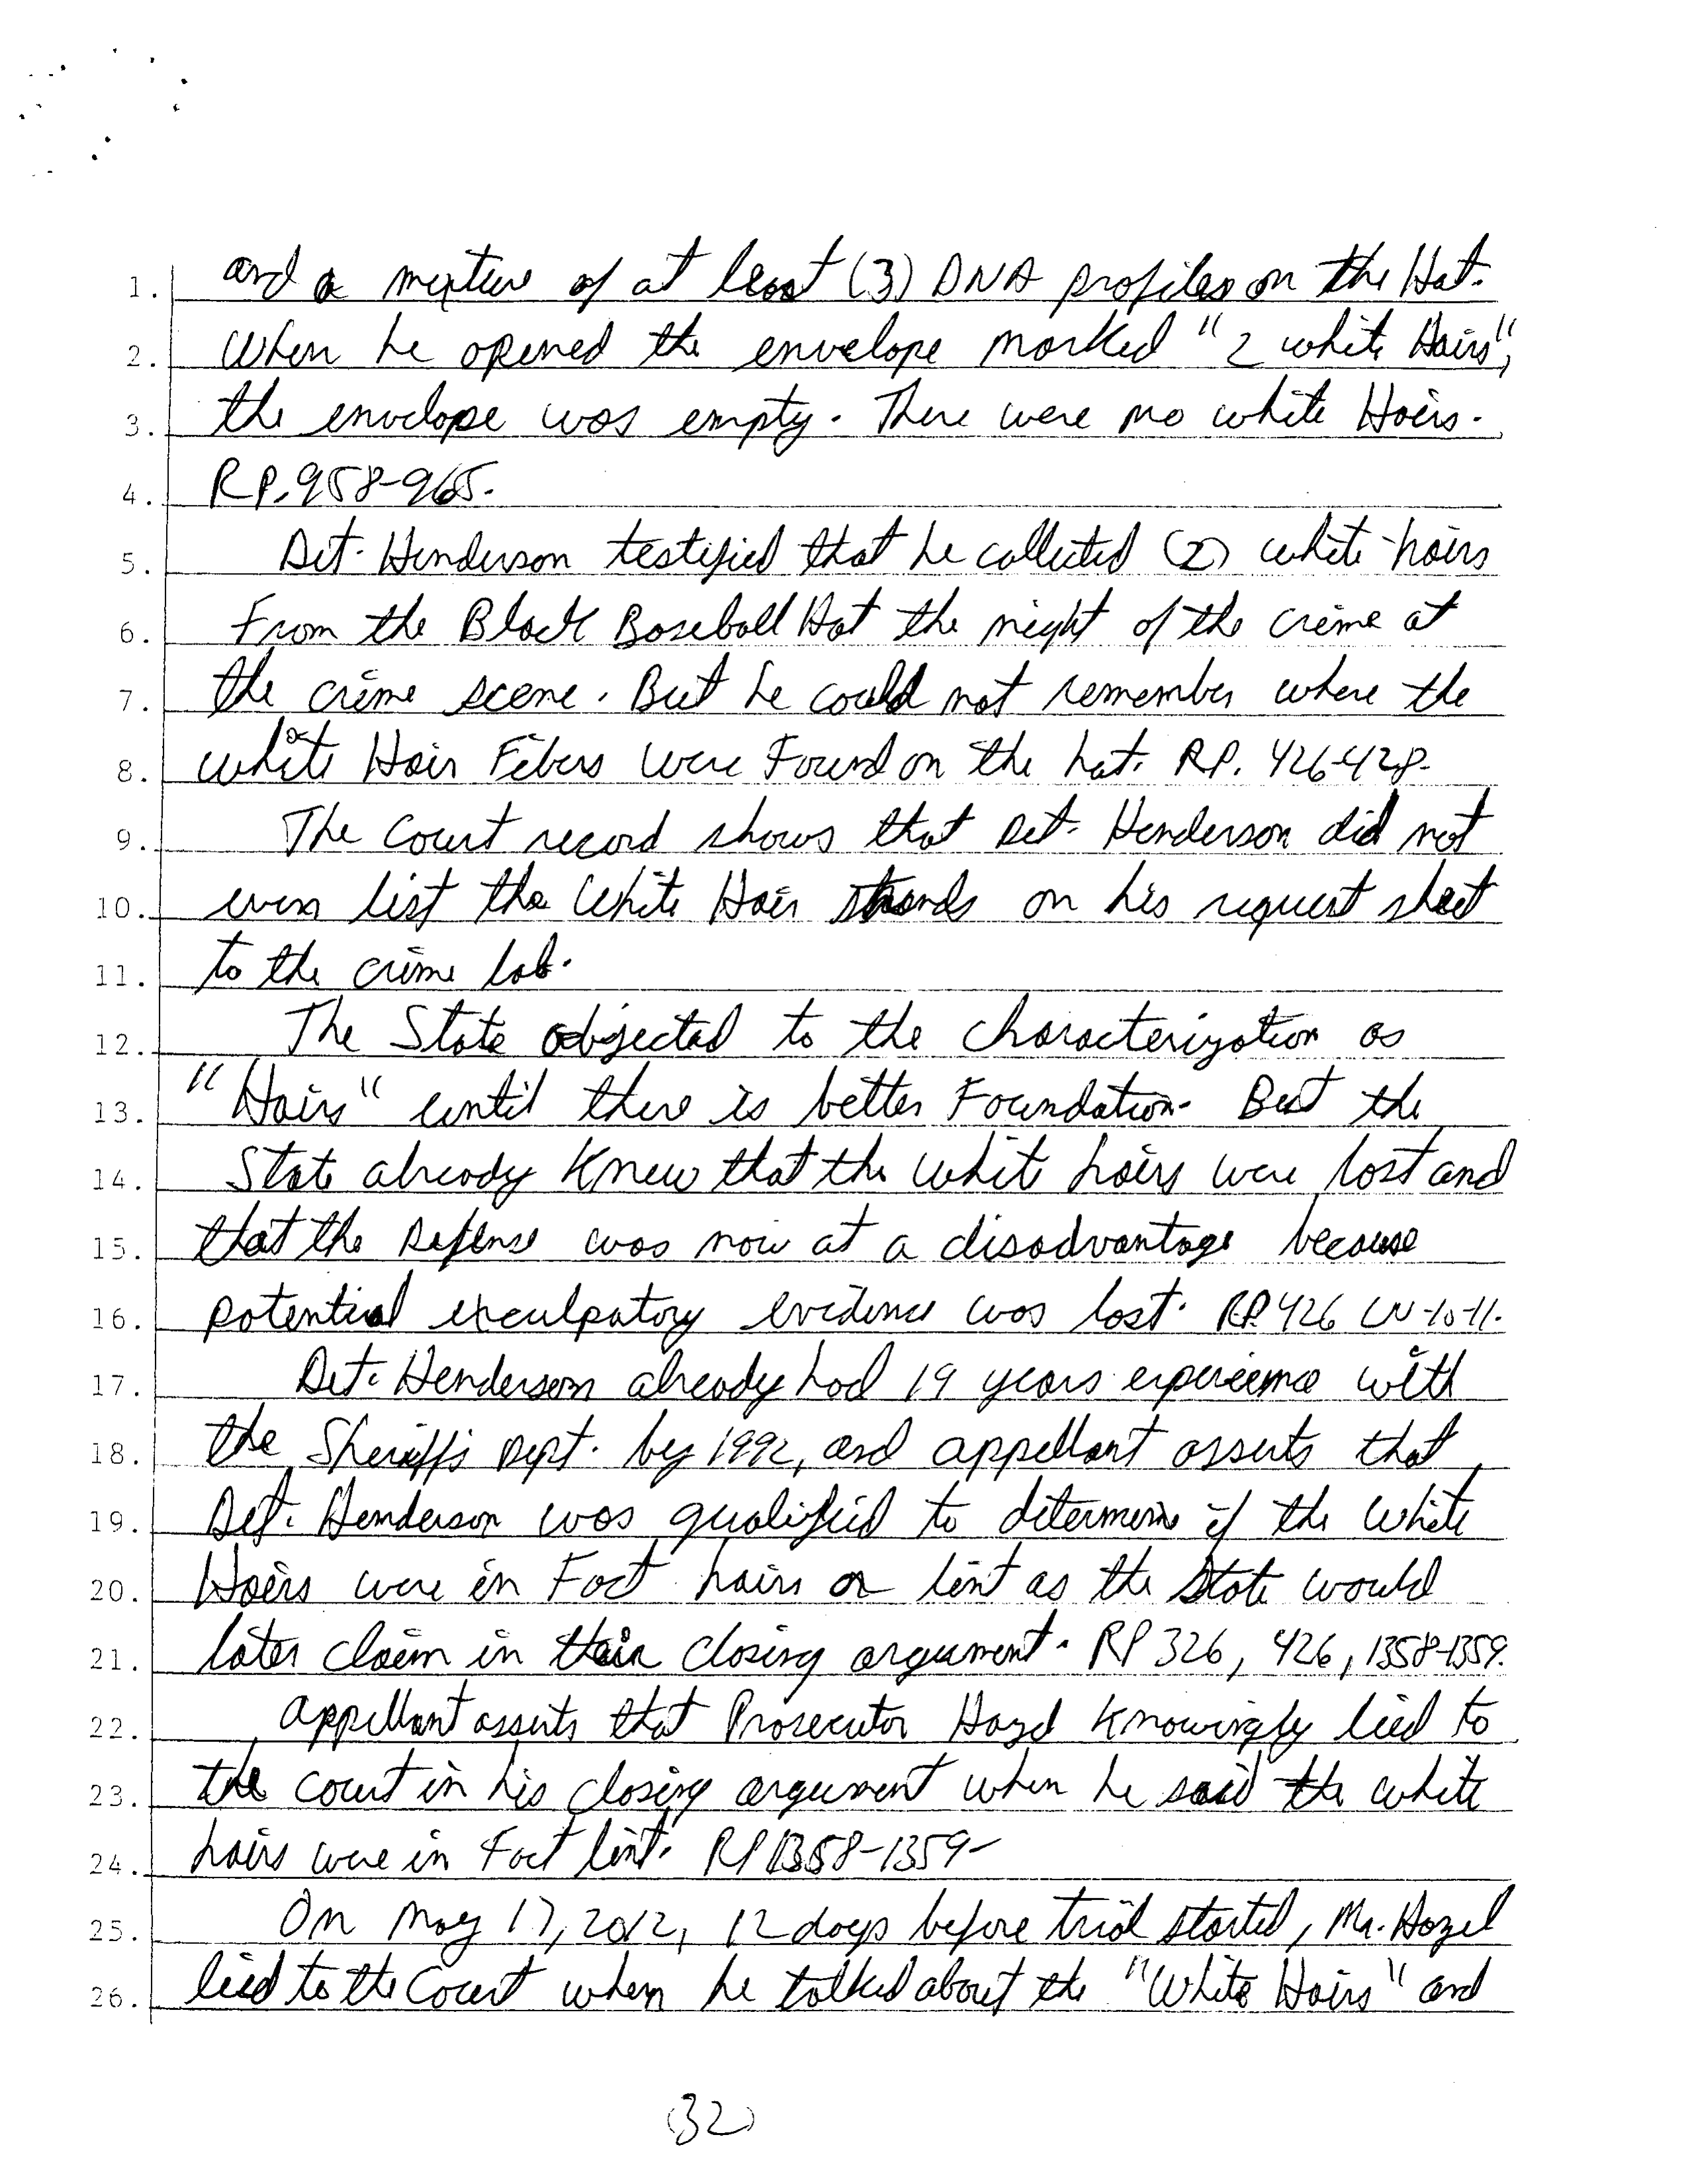 1. and a mixture of at least (3) DNA profiles on the Hat.
2. When he opened the envelope marked "2 white Hairs",
3. the envelope was empty. There were no white Hairs.
4. RP. 958-965.
5. Det. Henderson testified that he collected (2) white hairs
6. From the Black Baseball Hat the night of the crime at
7. the crime scene. But he could not remember where the
8. white Hair Fibers were Found on the hat. RP. 426-428.
9. The Court record shows that Det. Henderson did not
10. even list the White Hair strands on his request sheet
11. to the crime lab.
12. The State objected to the characterization as
13. "Hairs" until there is better Foundation. But the
14. State already Knew that the white hairs were lost and
15. that the Defense was now at a disadvantage because
16. potential exculpatory evidence was lost. RP. 426 LN-10-11.
17. Det. Henderson already had 19 years experience with
18. the Sheriff's Dept. by 1992, and appellant asserts that
19. Det. Henderson was qualified to determine if the White
20. Hairs were in Fact hairs or lint as the State would
21. later claim in their closing argument. RP 326, 426, 1358-1359.
22. appellant asserts that Prosecutor Knowingly lied to
23. the court in his closing argument when he said the white
24. hairs were in Fact lint. RP 1358-1359-
25. On May 17, 2012, 12 days before trial started, Mr. Hazel
26. lied to the Court when he talked about the "White Hairs" and
(32)